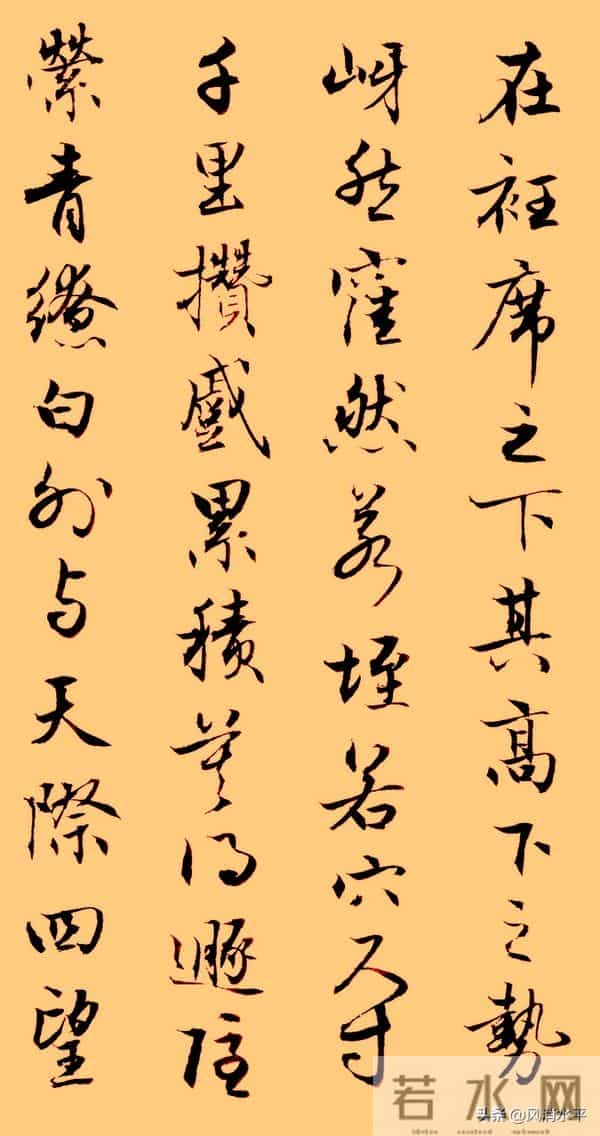 在衽席之下其高下之勢
岈然窪然若垤若穴尺寸
千里攢蹙累積莫得遯隱
縈青繚白外与天際四望
若水网
头条 @风消水平